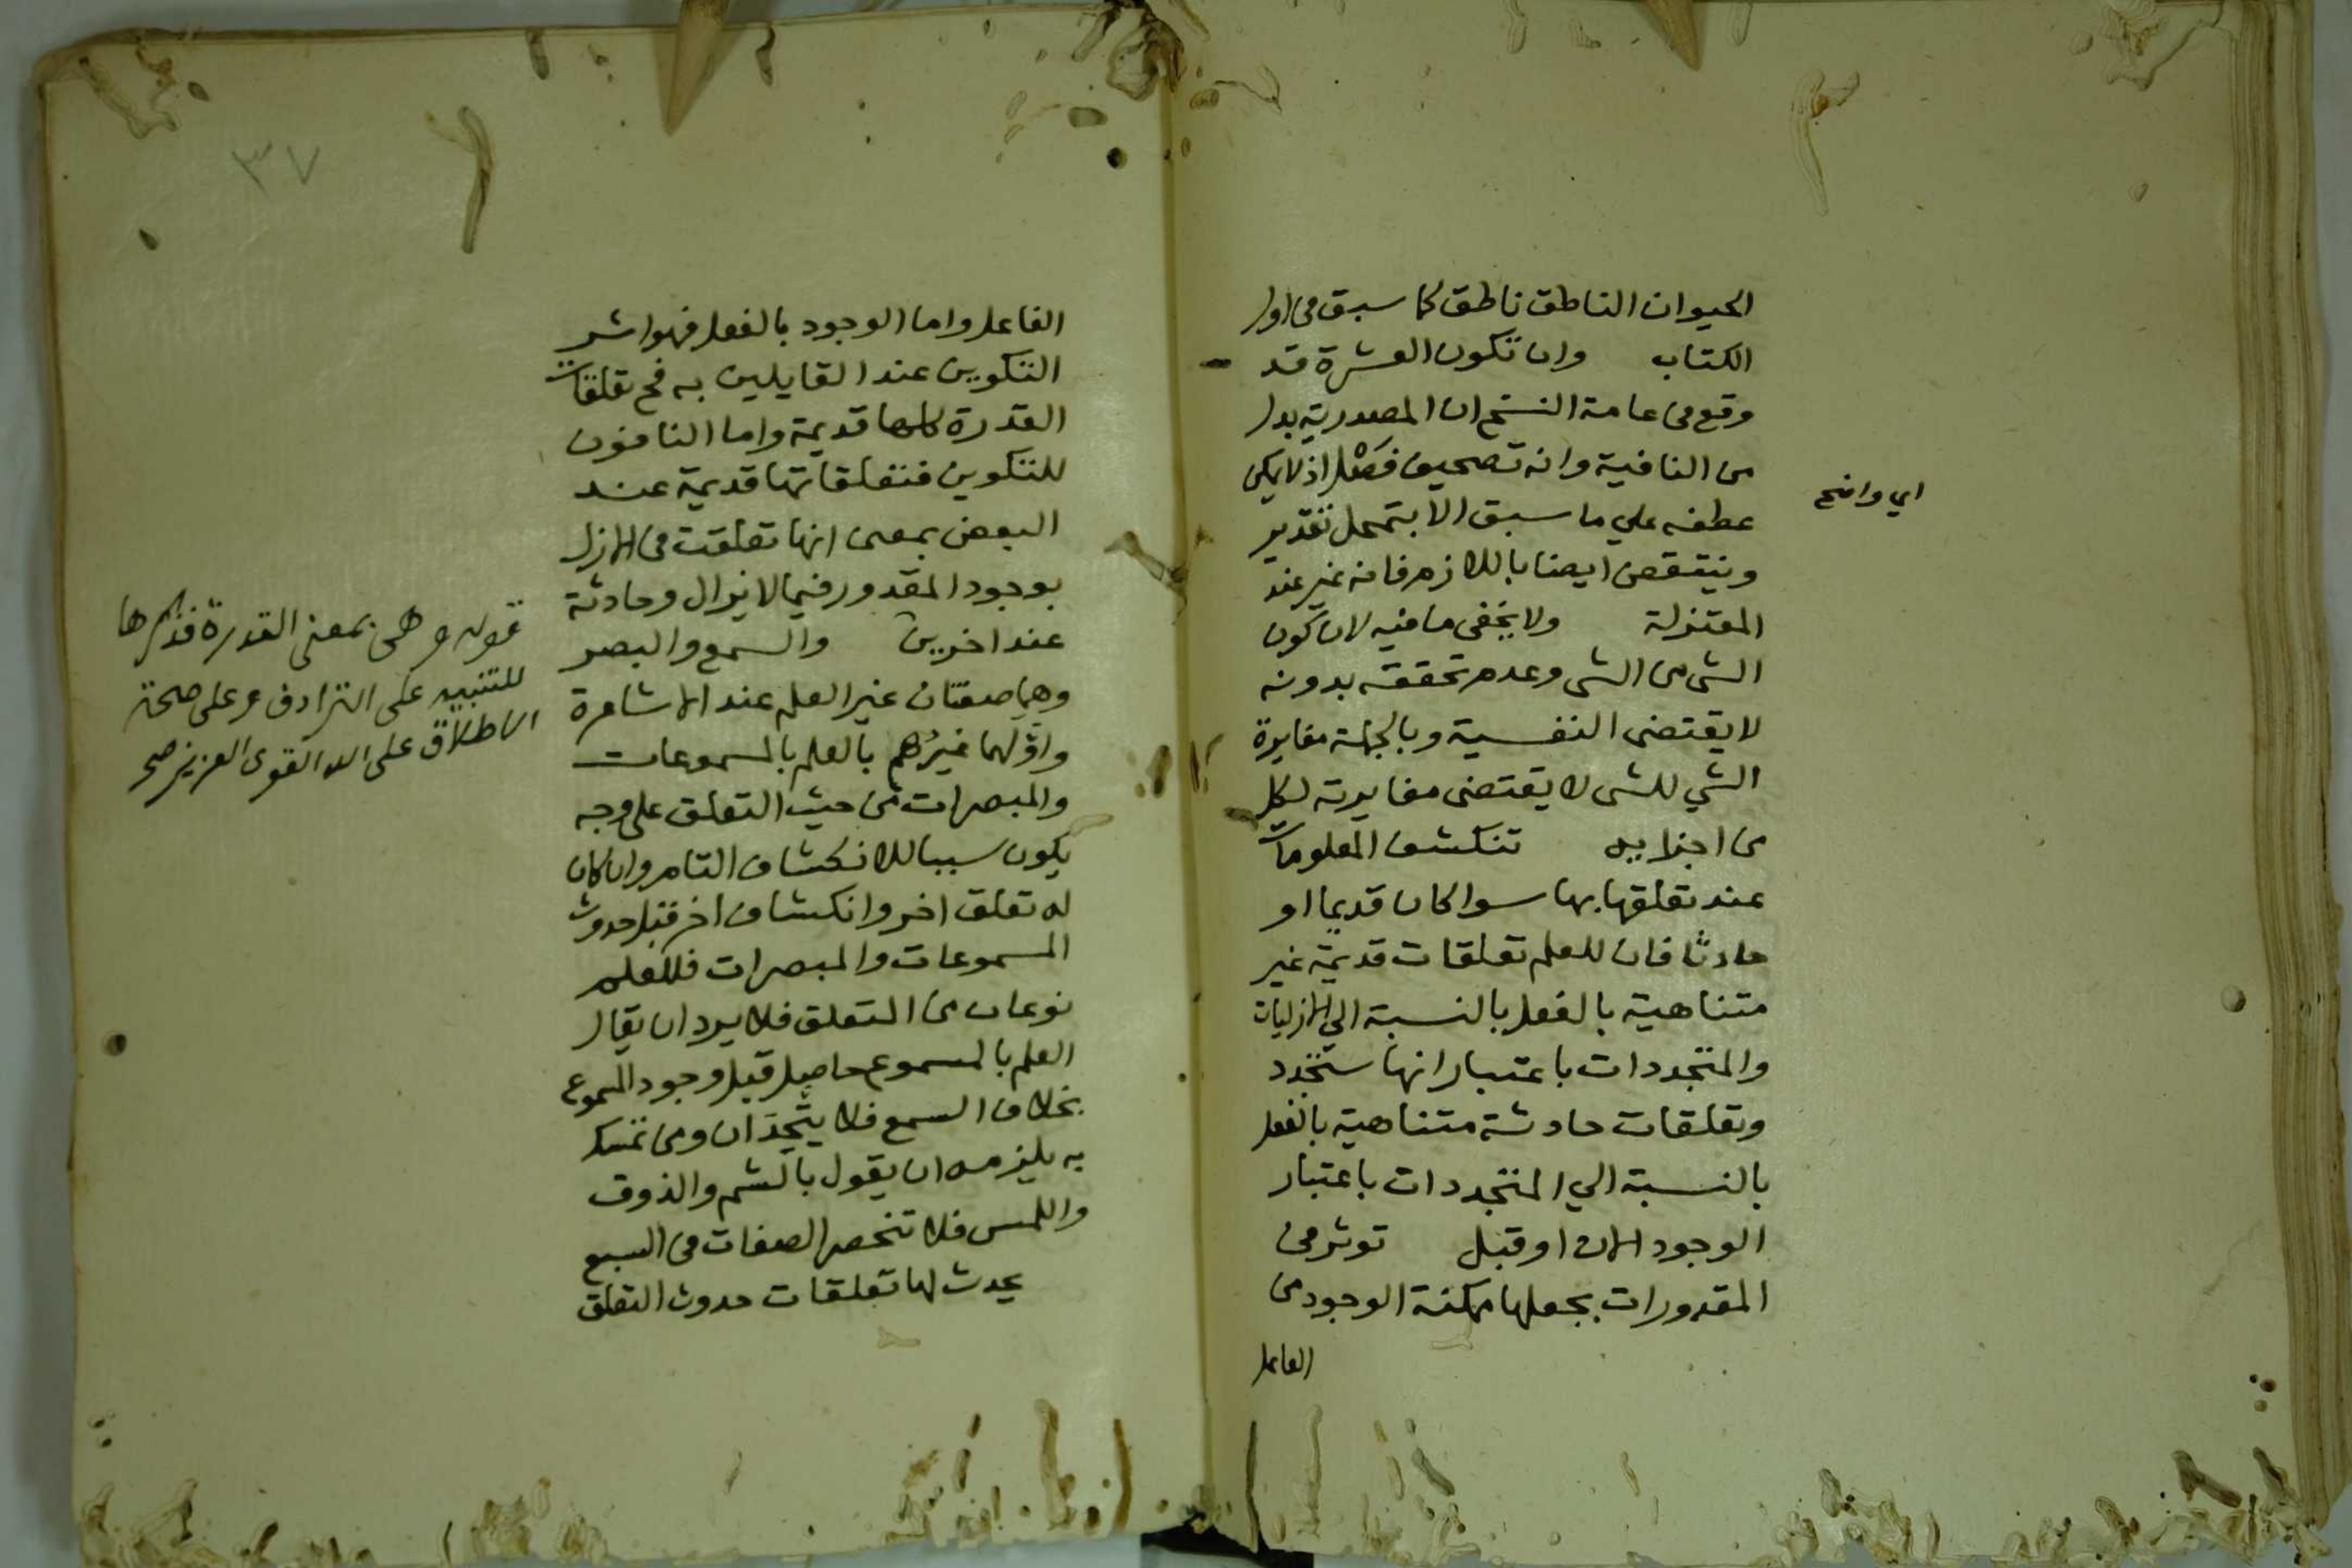 الحيوان الناطق ناطق كما سبق في اول
الكتاب وان تكون العشرة قد
وقع في عامة النسخ ان المصدرية بدل
من النافية وانه تصحيف فضل اذ لا يمكن
اي واضح
عطفه علي ما سبق الا بتمحل تقدير
وينتقض ايضا باللازم فانه غير عند
المعتزلة ولا يخفى ما فيه لان كون
الشي من الشي وعدم تحققه بدونه
لا يقتضى النفسية وبالجملة مغايرة
الشي للشي لا يقتضى مغايرته لكل
من اجزايه تنكشف المعلومات
عند تعلقها بها سوا كان قديما او
حادثا فان للعلم تعلقات قديمة غير
متناهية بالفعل بالنسبة الي الازليات
والمتجددات باعتبار انها ستتجدد
وتعلقات حادثة متناهية بالفعل
بالنسبة الي المتجددات باعتبار
الوجود الان او قبل توثر في
المقدورات بجعلها ممكنة الوجود من
الفاعل
٣٧
الفاعل واما الوجود بالفعل فهو اثر
التكوين عند القايلين به فح تعلقات
القدرة كلها قديمة واما النافون
للتكوين فتعلقاتها قديمة عند
البعض بمعنى انها تعلقت في الازل
بوجود المقدور فيما لا يزال وحادثة
عند اخرين والسمع والبصر
وهما صفتان غير العلم عند الاشاعرة
واولهما غيرهم بالعلم بالمسموعات
والمبصرات من حيث التعلق على وجه
يكون سببا للانكشاف التام وان كان
له تعلق اخر وانكشاف اخر قبل حدوث
المسموعات والمبصرات فللعلم
نوعان من التعلق فلا يرد ان يقال
العلم بالمسموع حاصل قبل وجود المسموع
بخلاف السمع فلا يتحدان ومن تمسك
به يلزمه ان يقول بالشم والذوق
واللمس فلا تنحصر الصفات في السبع
يحدث لها تعلقات حدوث التعلق
قوله وهى بمعنى القدرة فذكرها
للتنبيه على الترادف وعلى صحة
الاطلاق على الله القوى العزيز صح